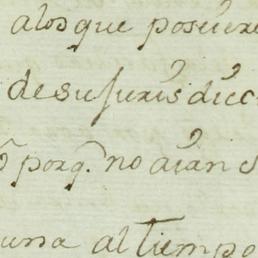 alos que poseiere
de su Juris dicc
porq. no aian s
una al tiempo